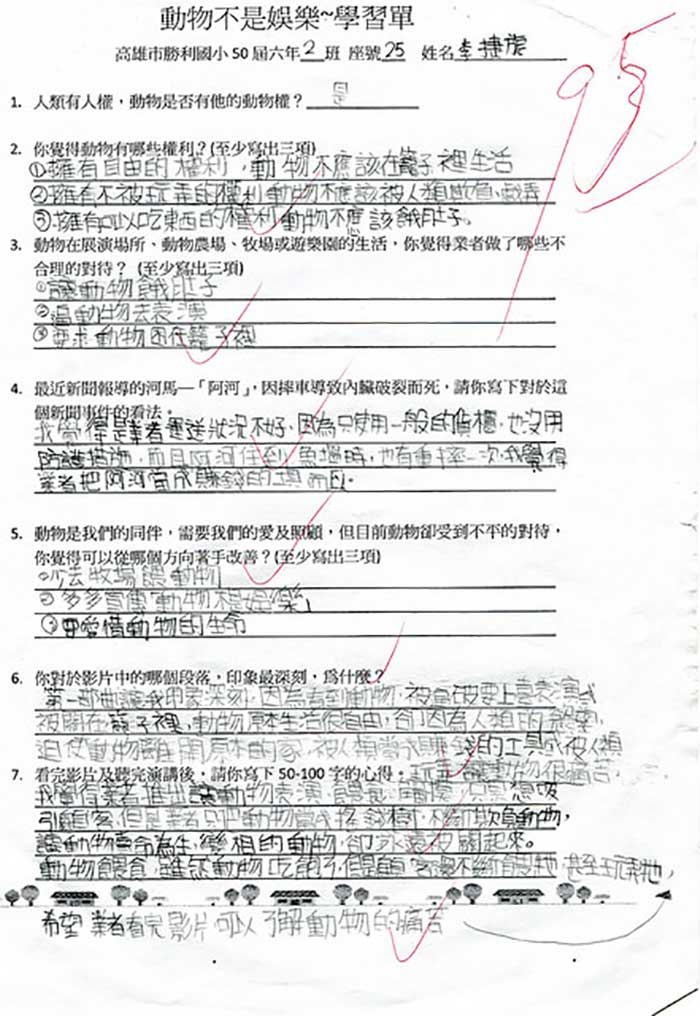 動物不是娛樂~學習單
高雄市勝利國小50屆六年2班 座號25 姓名李捷
95
1. 人類有人權，動物是否有他的動物權？是
2. 你覺得動物有哪些權利？(至少寫出三項)
①擁有自由的權利，動物不應該在籠子裡生活
②擁有不被玩弄的權利動物不應該被人類欺負、戲弄
③擁有可以吃東西的權利動物不應該餓肚子。
3. 動物在展演場所、動物農場、牧場或遊樂園的生活，你覺得業者做了哪些不
合理的對待？ (至少寫出三項)
①讓動物餓肚子
②逼動物去表演
③要求動物困在籠子裡
4. 最近新聞報導的河馬─「阿河」，因摔車導致內臟破裂而死，請你寫下對於這
個新聞事件的看法。
我覺得是業者運送狀況不好，因為只使用一般的貨櫃，也沒用
防護措施，而且阿河住到魚塭時，也有重摔一次，我覺得
業者把阿河當成賺錢的工具而已。
5. 動物是我們的同伴，需要我們的愛及照顧，但目前動物卻受到不平的對待，
你覺得可以從哪個方向著手改善？(至少寫出三項)
①少去牧場餵動物
②多多宣傳「動物想娛樂」
③要愛惜動物的生命
6. 你對於影片中的哪個段落，印象最深刻，為什麼？
第一部曲讓我印象深刻，因為看到動物，被要上臺表演或
被關在籠子裡，動物原本生活很自由，卻因為人類的
迫使動物離開原本的家，被人類當成賺錢的工具或被人類
玩弄讓動物很痛苦，
7. 看完影片及聽完演講後，請你寫下 50-100 字的心得。
我覺得業者推出讓動物表演、餵食、只為想吸
引顧客，但是業者只把動物當成搖錢樹，不斷欺負動物，
讓動物賣命為生，變相的動物，卻永遠被關起來。
動物餵食，雖然動物吃飽了，但是顧客還不斷餵牠，甚至玩弄牠，
希望業者看完影片可以了解動物的痛苦